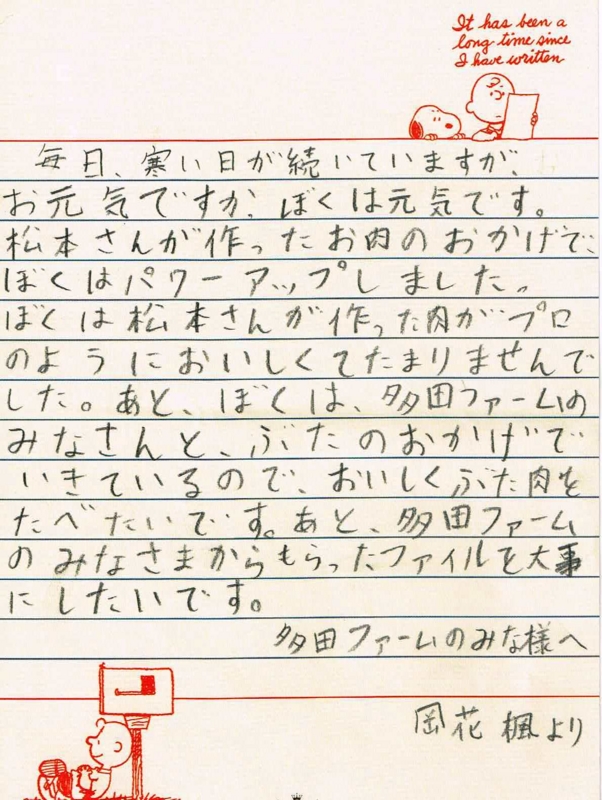 It has been a
long time since
I have written
毎日、寒い日が続いていますが、
お元気ですか、ぼくは元気です。
松本さんが作ったお肉のおかげで、
ぼくはパワーアップしました。
ぼくは松本さんが作った肉がプロ
のようにおいしくてたまりませんで
した。あと、ぼくは、多田ファームの
みなさんと、ぶたのおかげで
いきているので、おいしくぶた肉を
たべたいです。あと、多田ファーム
のみなさまからもらったファイルを大事
にしたいです。
多田ファームのみな様へ
岡花楓より